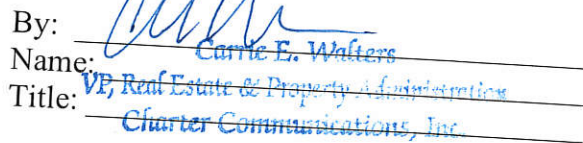 By:
Name: Carrie E. Walters
Title: VP, Real Estate & Property Administration
Charter Communications, Inc.